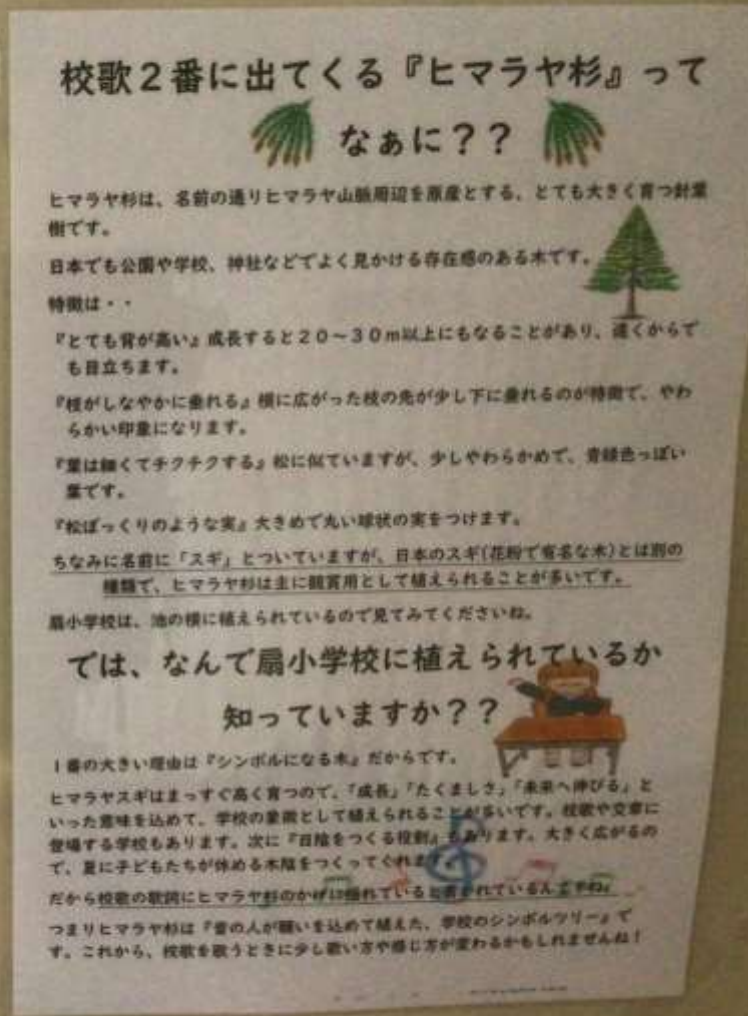 校歌２番に出てくる『ヒマラヤ杉』って
なぁに？？
ヒマラヤ杉は、名前の通りヒマラヤ山脈周辺を原産とする、とても大きく育つ針葉
樹です。
日本でも公園や学校、神社などでよく見かける存在感のある木です。
特徴は・・
『とても背が高い』成長すると２０～３０ｍ以上にもなることがあり、遠くからで
も目立ちます。
『枝がしなやかに垂れる』横に広がった枝の先が少し下に垂れるのが特徴で、やわ
らかい印象になります。
『葉は細くてチクチクする』松に似ていますが、少しやわらかめで、青緑色っぽい
葉です。
『松ぼっくりのような実』大きめで丸い球状の実をつけます。
ちなみに名前に「スギ」とついていますが、日本のスギ(花粉で有名な木)とは別の
種類で、ヒマラヤ杉は主に観賞用として植えられることが多いです。
扇小学校は、池の横に植えられているので見てみてくださいね。
では、なんで扇小学校に植えられているか
知っていますか？？
１番の大きい理由は『シンボルになる木』だからです。
ヒマラヤスギはまっすぐ高く育つので、「成長」「たくましさ」「未来へ伸びる」と
いった意味を込めて、学校の象徴として植えられることが多いです。校歌や文章に
登場する学校もあります。次に『日陰をつくる役割』もあります。大きく広がるの
で、夏に子どもたちが休める木陰をつくってくれます。
だから校歌の歌詞にヒマラヤ杉のかげに揺れていると書かれているんですね。
つまりヒマラヤ杉は『昔の人が願いを込めて植えた、学校のシンボルツリー』で
す。これから、校歌を歌うときに少し歌い方や感じ方が変わるかもしれませんね！